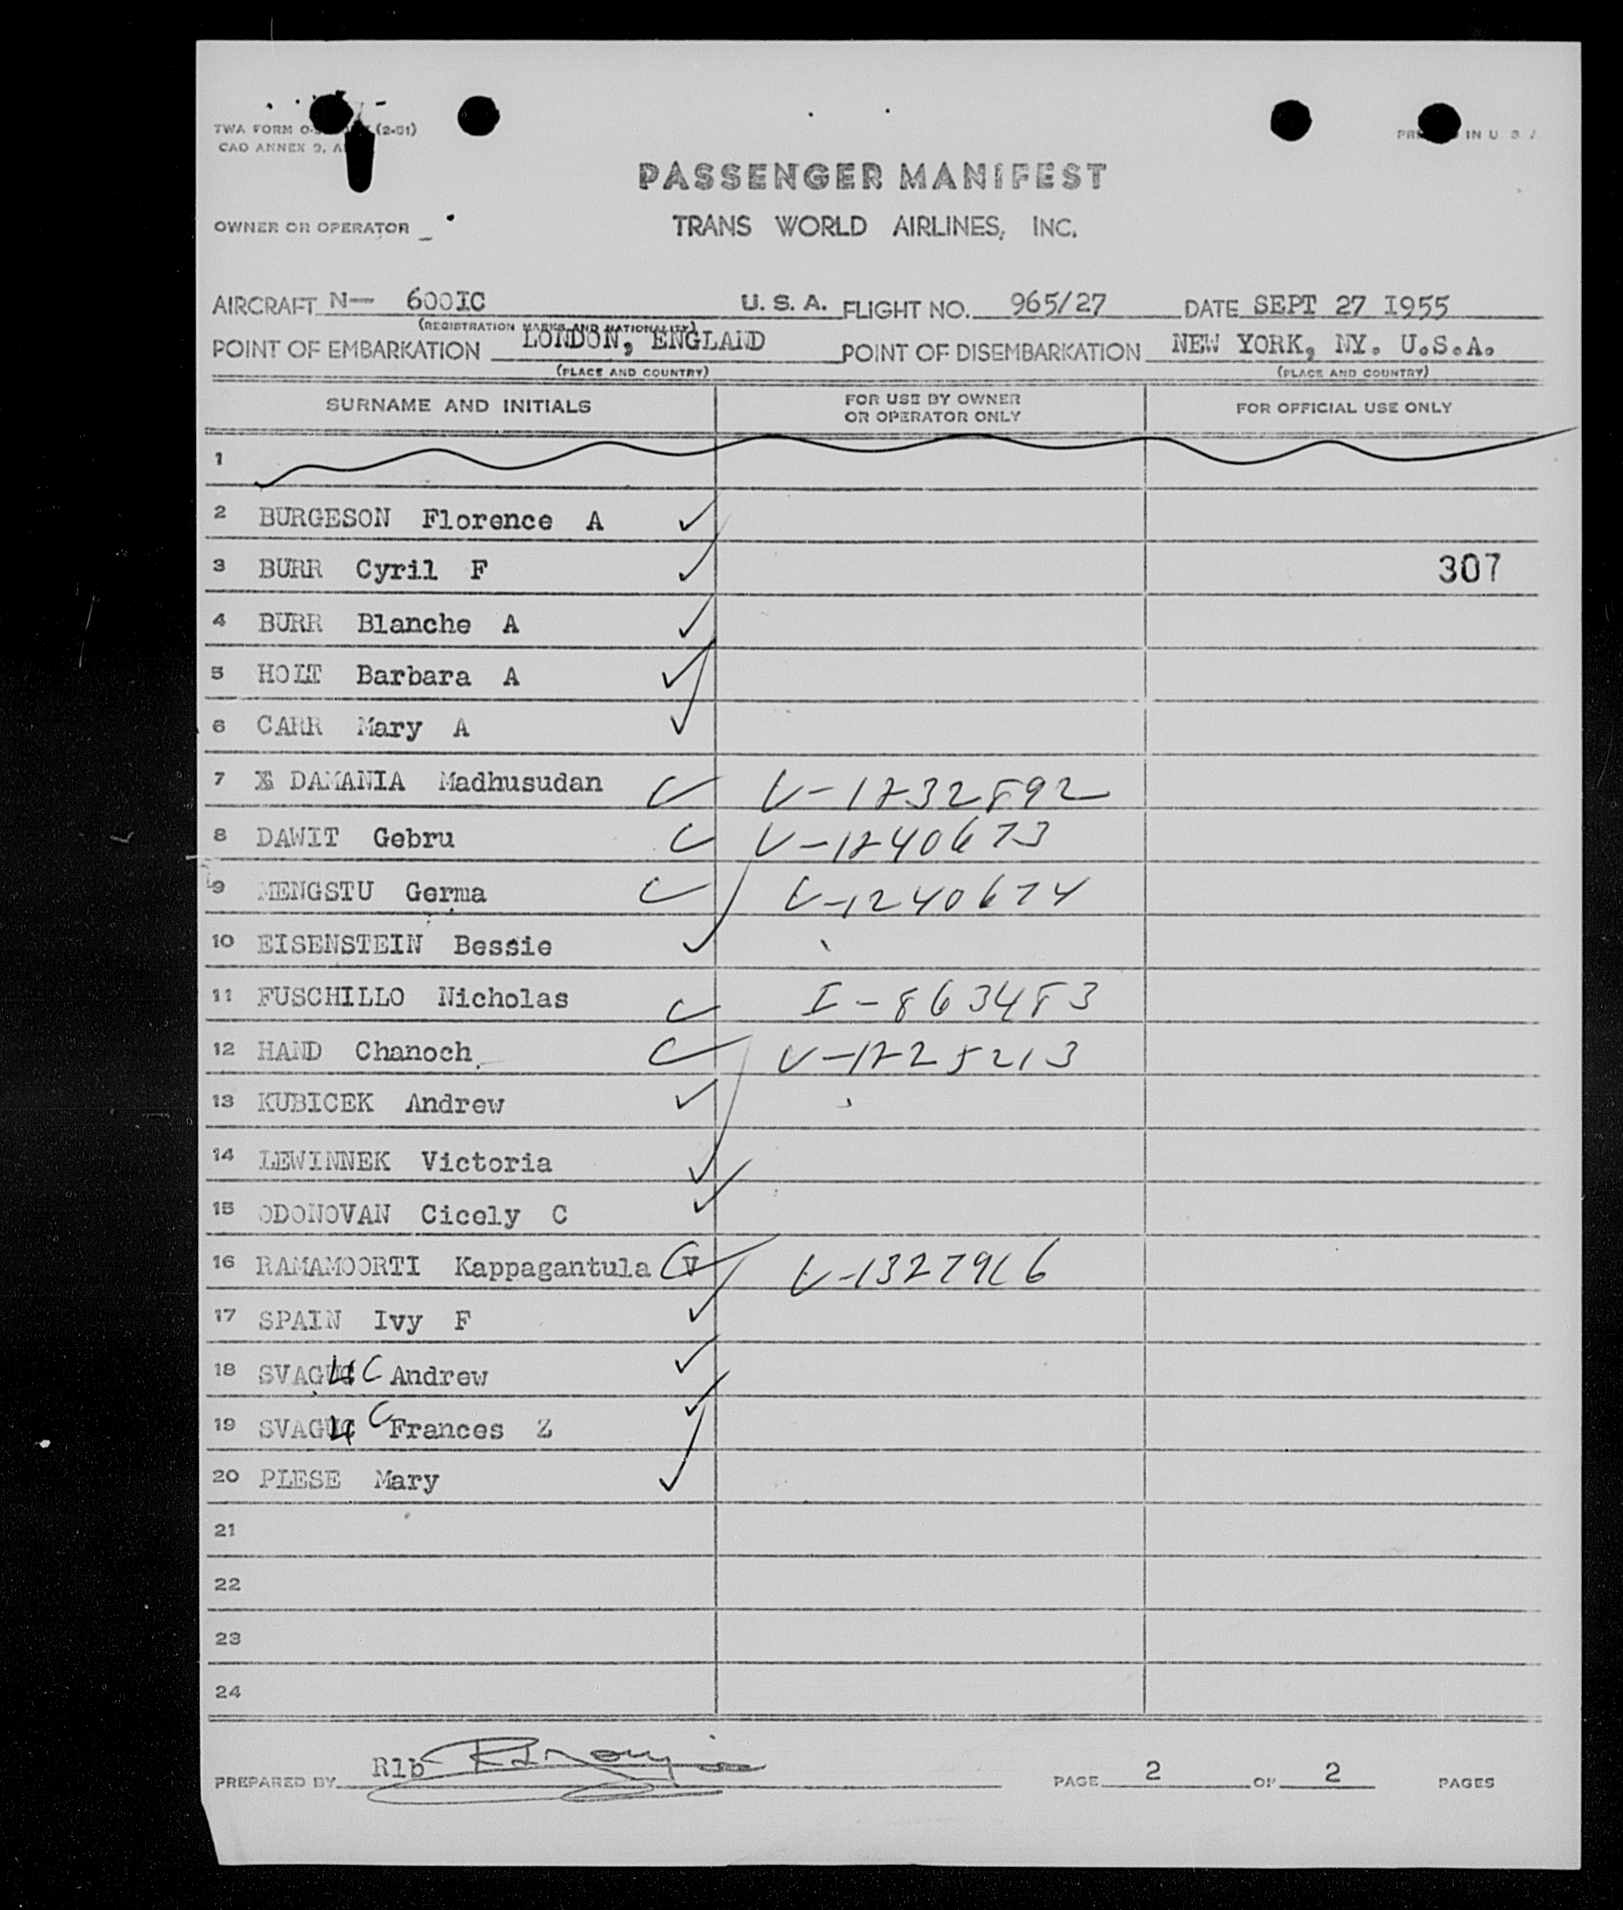 TWA FORM (2-51)
CAO ANNEX 9,
IN U. S.
PASSENGER MANIFEST
OWNER OR OPERATOR
TRANS WORLD AIRLINES, INC.
AIRCRAFT N- 600IC U. S. A. FLIGHT NO. 965/27 DATE SEPT 27 I955
(REGISTRATION MARKS AND NATIONALITY)
POINT OF EMBARKATION LONDON, ENGLAND POINT OF DISEMBARKATION NEW YORK, NY. U.S.A.
(PLACE AND COUNTRY) (PLACE AND COUNTRY)
SURNAME AND INITIALS FOR USE BY OWNER OR OPERATOR ONLY FOR OFFICIAL USE ONLY
1
2 BURGESON Florence A
3 BURR Cyril F 307
4 BURR Blanche A
5 HOLT Barbara A
6 CARR Mary A
7 DAMANIA Madhusudan V-1232892
8 DAWIT Gebru V-1240673
9 MENGSTU Germa V-1240674
10 EISENSTEIN Bessie
11 FUSCHILLO Nicholas I-863483
12 HAND Chanoch V-1225213
13 KUBICEK Andrew
14 LEWINNEK Victoria
15 ODONOVAN Cicely C
16 RAMAMOORTI Kappagantula V
17 SPAIN Ivy F
18 SVAGUC Andrew
19 SVAGUC Frances Z
20 PLESE Mary
21
22
23
24
PREPARED BY Rlb PAGE 2 OF 2 PAGES